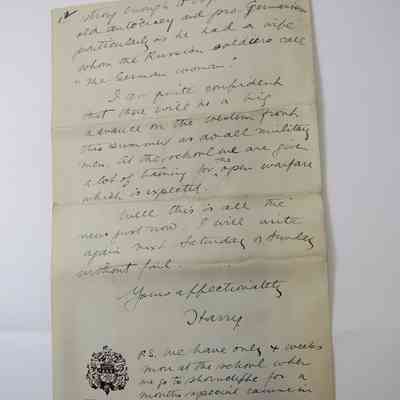 strong enough to
old autocracy and pro-Germanism
particularly as he had a wife
whom the Russian soldiers call
"the German woman"
I am quite confident
that there will be a big
advance on the western front
this summer as do all military
men. At the school we are given
a lot of training for the open warfare
which is expected.
Well this is all the
news just now. I will write
again next Saturday or Sunday
without fail.
Yours affectionately
Harry
P.S. We have only 4 weeks
more at the school when
we go to Shorncliffe for a
months special course in